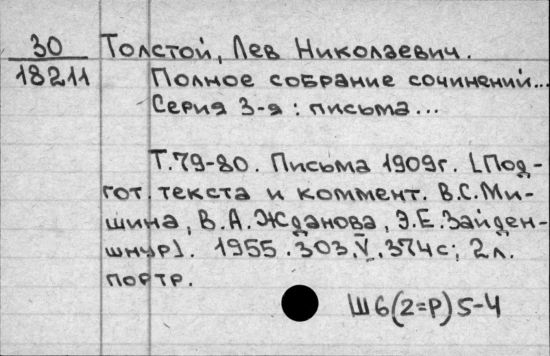 30 Толстой, Лев Николаевич.
18211 Полное собрание сочинений...
Серия 3-я: письма...
Т.79-80. Письма 1909г. [Под-
гот. текста и коммент. В.С.Ми-
шина, В.А.Жданова, Э.Е.Зайден-
шнур]. 1955. 303, V, 374с; 2л.
портр.
Ш6(2=Р)5-4